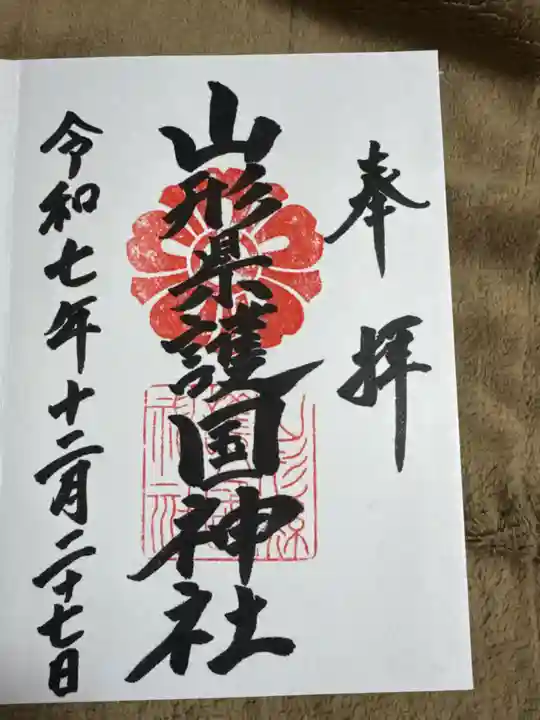 奉拝
山形県護国神社
令和七年十二月二十七日